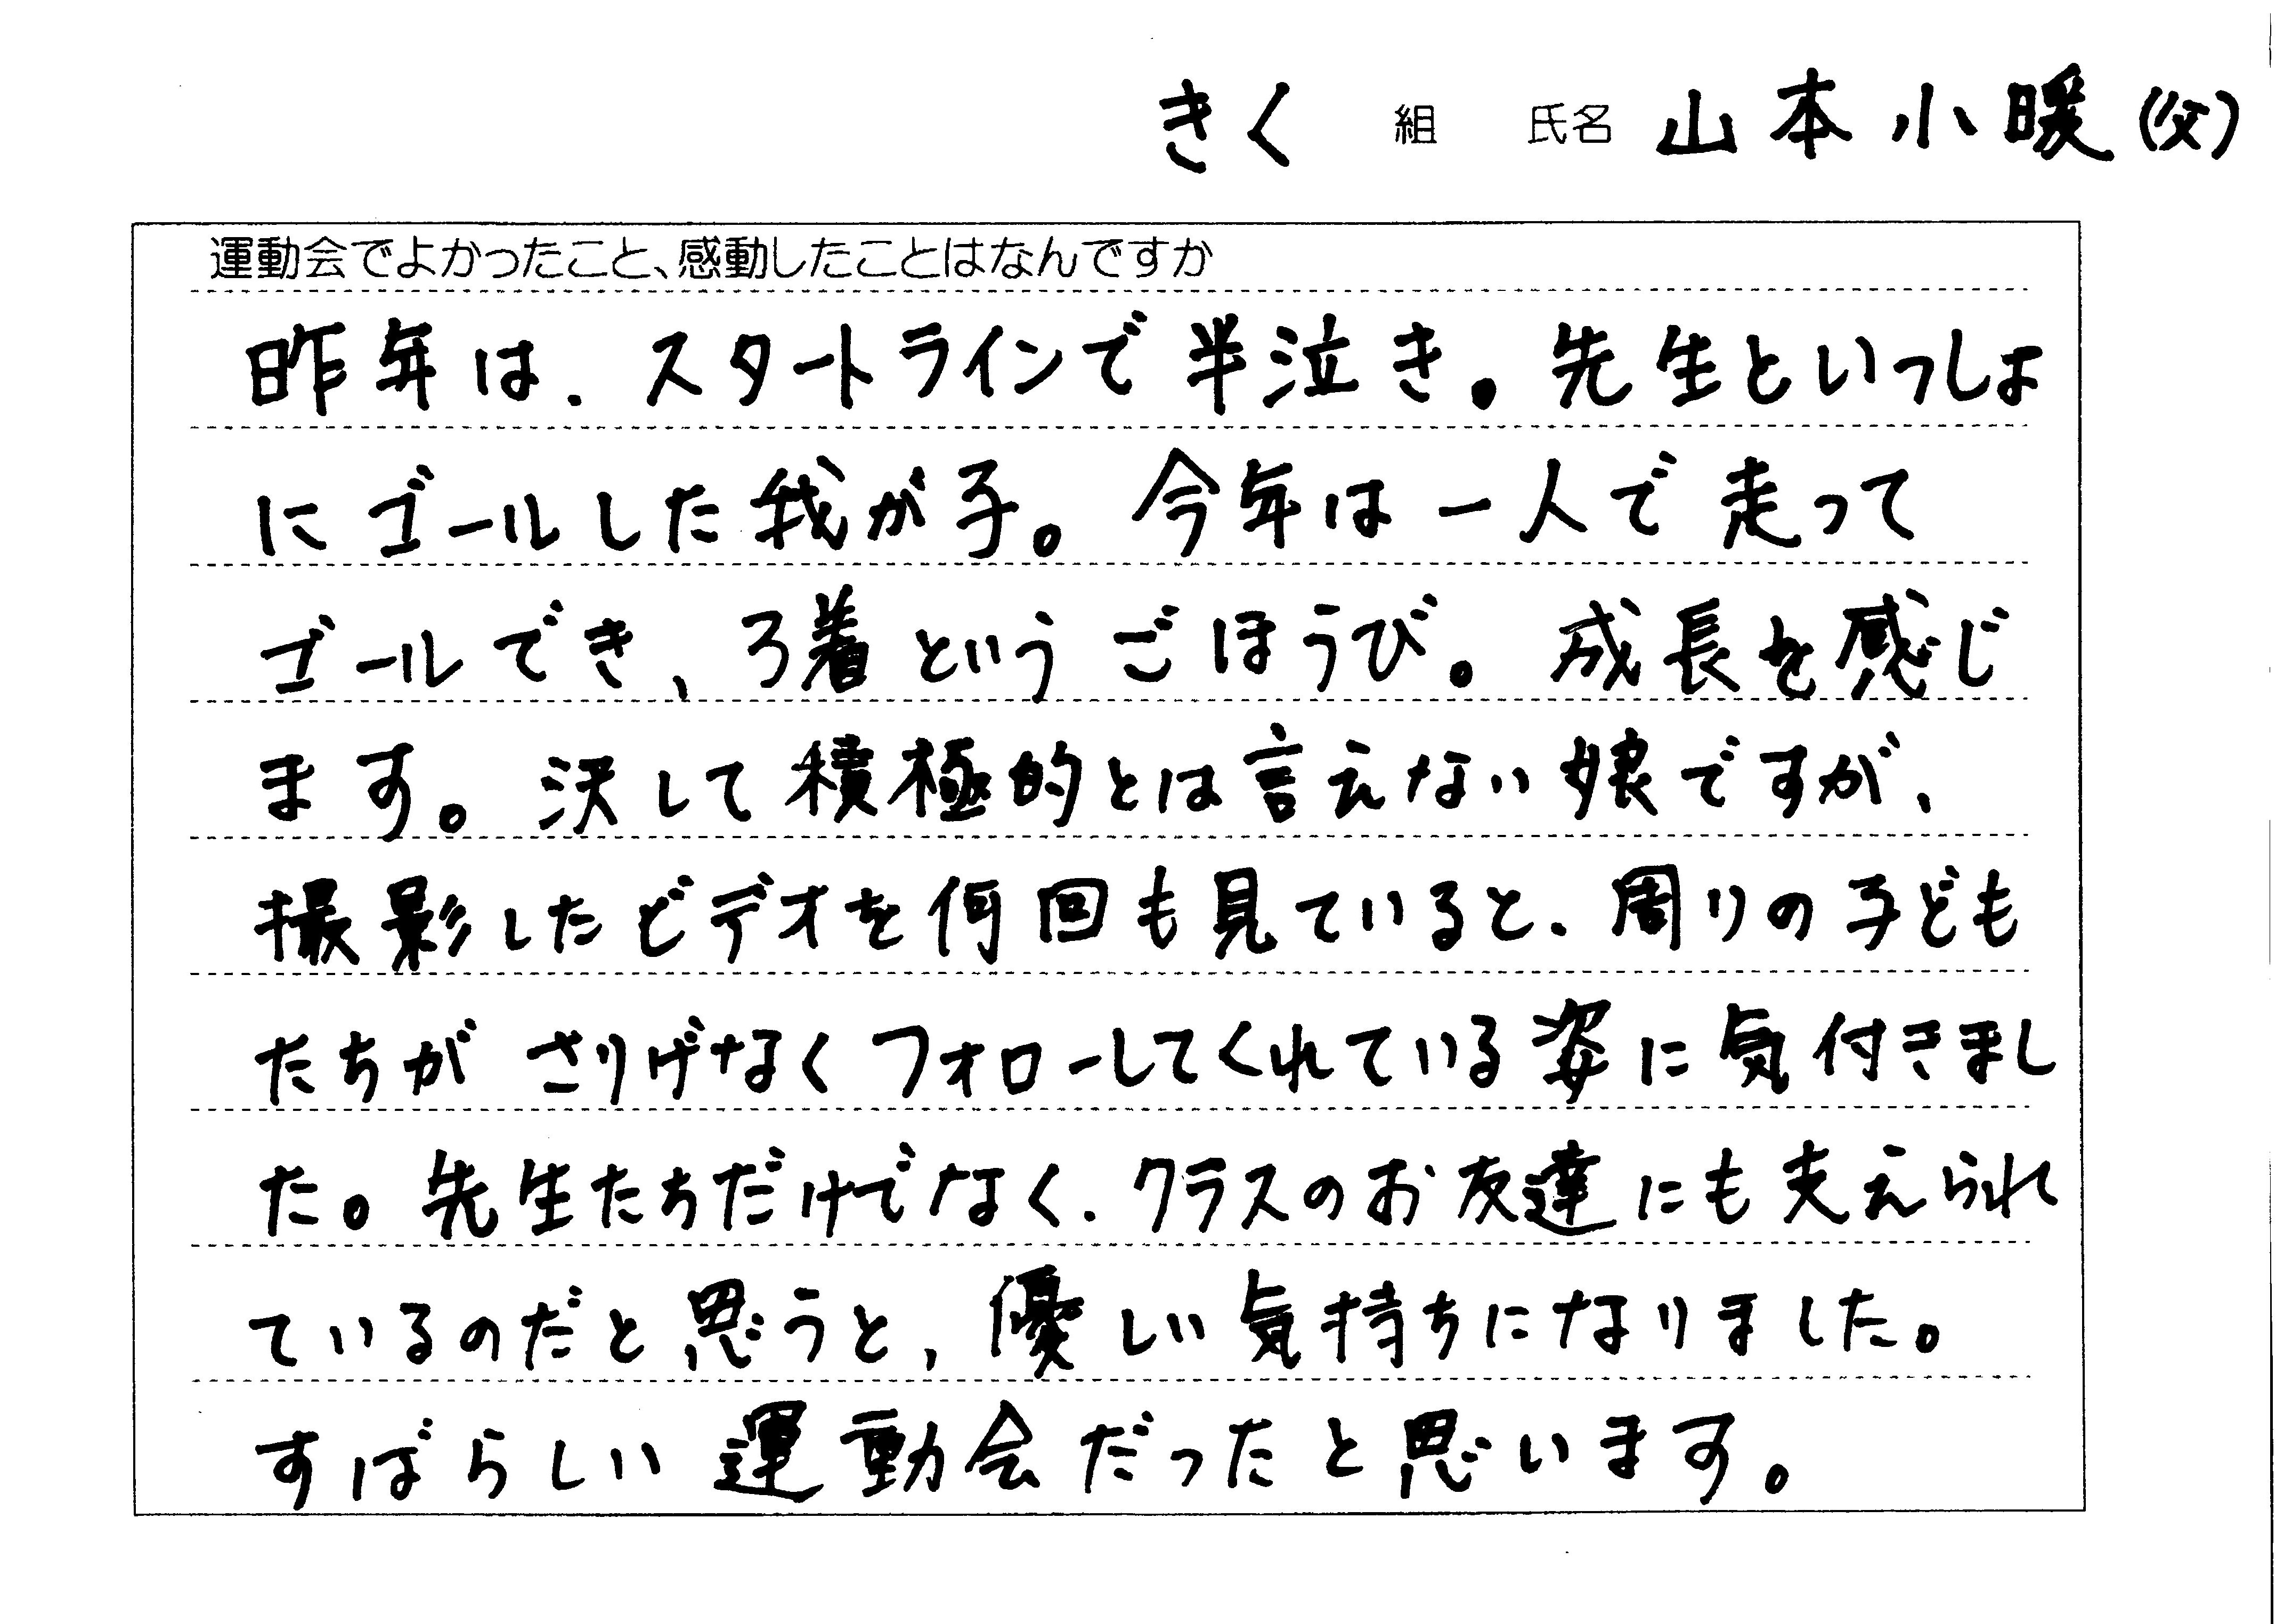 きく 組 氏名 山本小暖(父)
運動会でよかったこと、感動したことはなんですか
昨年は、スタートラインで半泣き。先生といっしょ
にゴールした我が子。今年は一人で走って
ゴールでき、3着というごほうび。成長を感じ
ます。決して積極的とは言えない娘ですが、
撮影したビデオを何回も見ていると、周りの子ども
たちがさりげなくフォローしてくれている姿に気付きまし
た。先生たちだけでなく、クラスのお友達にも支えられ
ているのだと思うと、優しい気持ちになりました。
すばらしい運動会だったと思います。